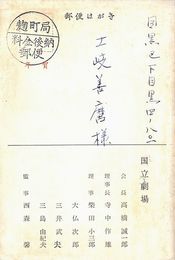 郵便はがき
麹町局
料金後納
郵便
目黒区下目黒四ノ八二
土岐善麿様
国立劇場
会長 高橋誠一郎
理事長 寺中作雄
理事 柴田小三郎
大仏次郎
三井武夫
三島由紀夫
監事 西森馨